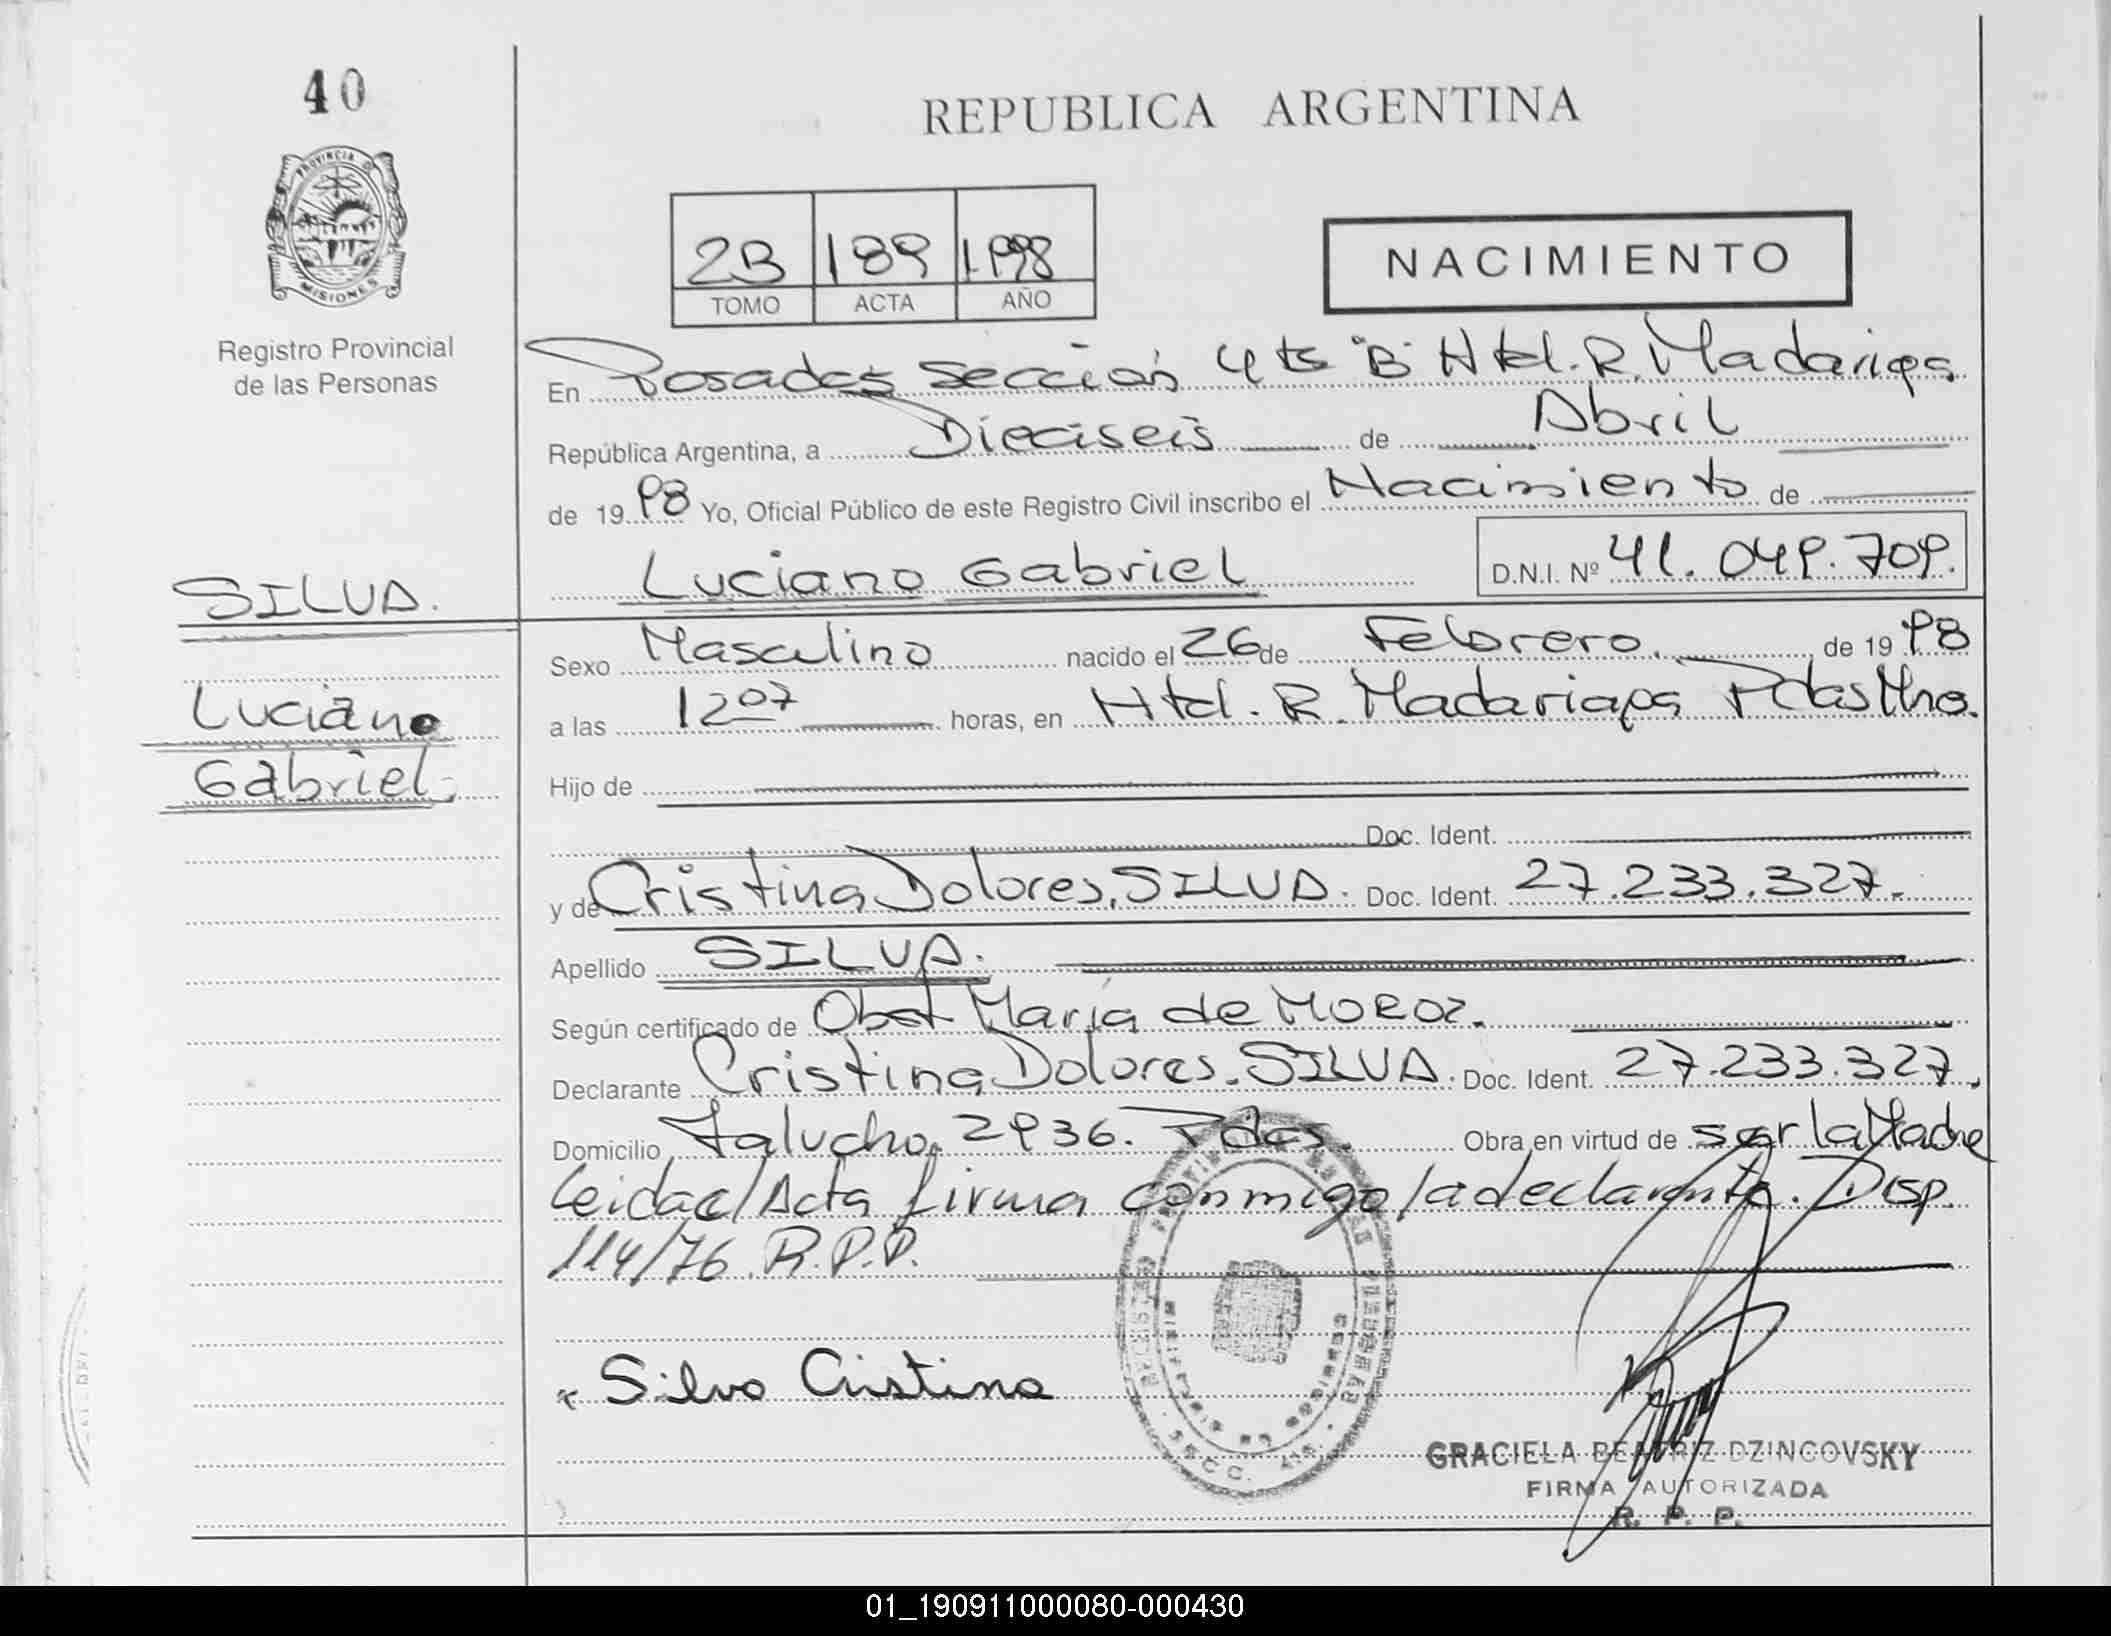 40
PROVINCIA D
MISIONES
Registro Provincial
de las Personas
REPUBLICA ARGENTINA
2B 189 1998
TOMO ACTA AÑO
NACIMIENTO
En Posadas Sección 4ta "B" Htal. R. Madariaga
República Argentina, a Dieciseis de Abril
de 1998 Yo, Oficial Público de este Registro Civil inscribo el Nacimiento de
SILVA. Luciano Gabriel D.N.I. Nº 41.049.709.
Sexo Masculino nacido el 26 de Febrero. de 1998
Luciano
a las 12 07 horas, en Htal. R. Madariaga Pdas Mnes.
Gabriel
Hijo de
Doc. Ident.
y de Cristina Dolores. SILVA. Doc. Ident. 27.233.327.
Apellido SILVA.
Según certificado de Obst María de MOROZ.
Declarante Cristina Dolores. SILVA. Doc. Ident. 27.233.327.
Domicilio Falucho. 2936. Pdas. Obra en virtud de ser la Madre
Leida el Acta firma conmigo la declarante. Disp.
114/76. R.P.P.
x Silva Cristina
SECC. 4ta
GRACIELA BEATRIZ DZINCOVSKY
FIRMA AUTORIZADA
R. P. P.
01_190911000080-000430